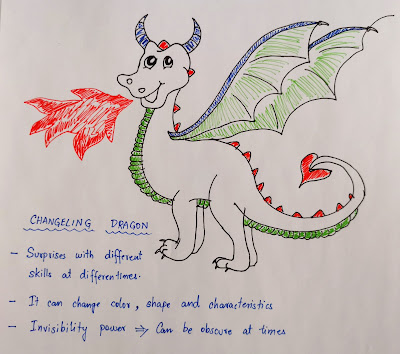 CHANGELING DRAGON
- Surprises with different
skills at different times.
- It can change color, shape and characteristics
- Invisibility power ⇒ Can be obscure at times